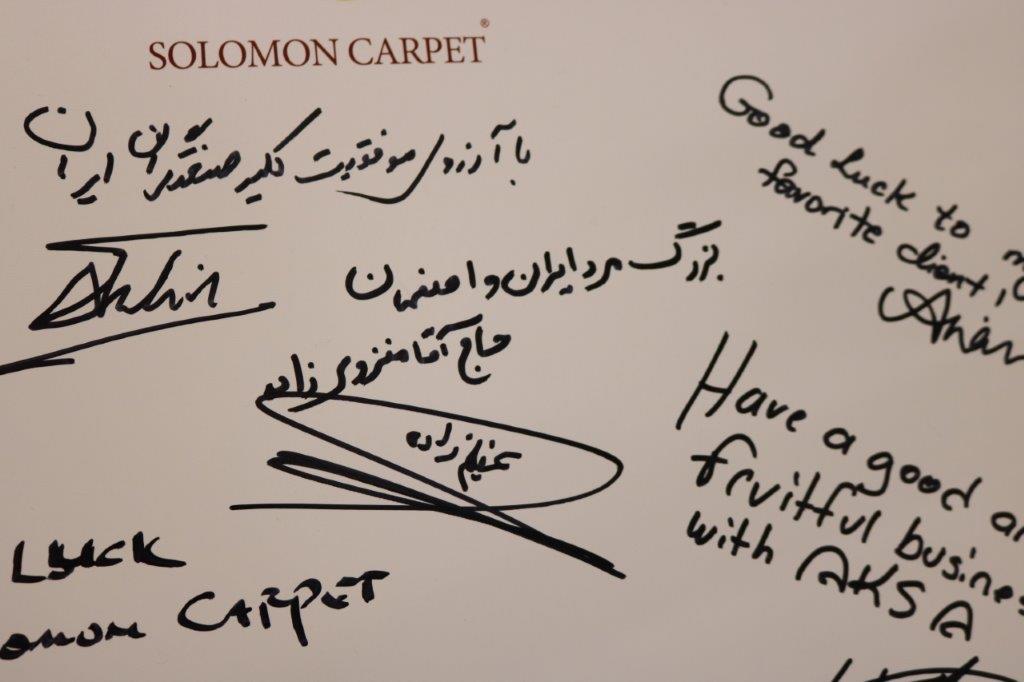 SOLOMON CARPET®
با آرزوی موفقیت کلیه صنعتگران ایران
بزرگ مرد ایران و اصفهان
حاج آقا منزوی زاده
Good Luck to
favorite client,
Have a good
fruitful business
with AKSA
LUCK
CARPET